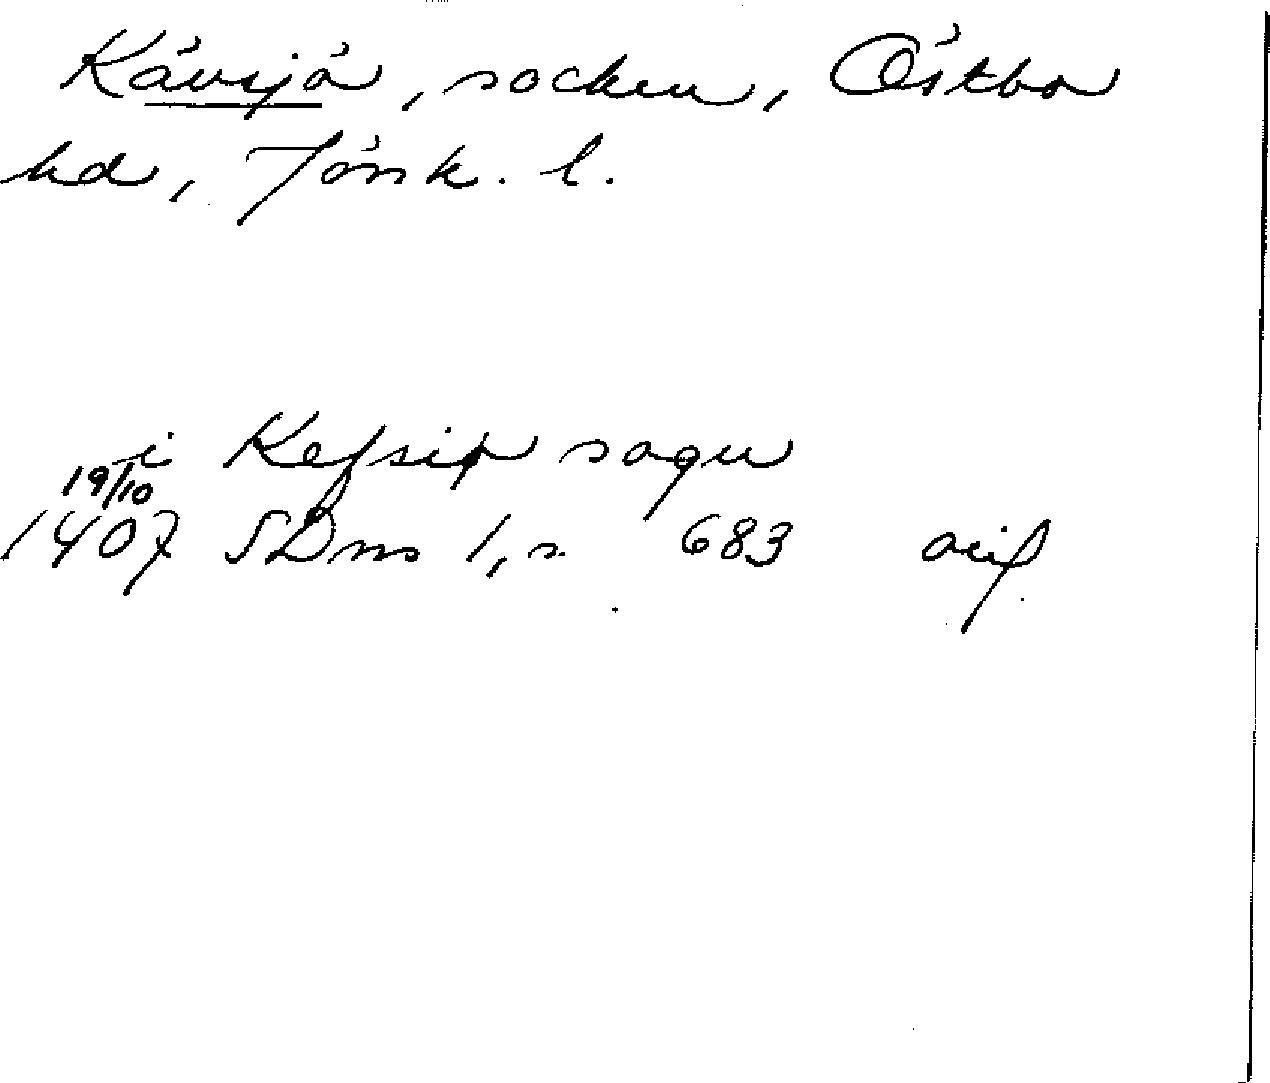 Kävsjö, socken, Östbo
hd, Jönk. l.
i Kefsiø sogn
19/10
1407 SDns 1, s. 683 avs